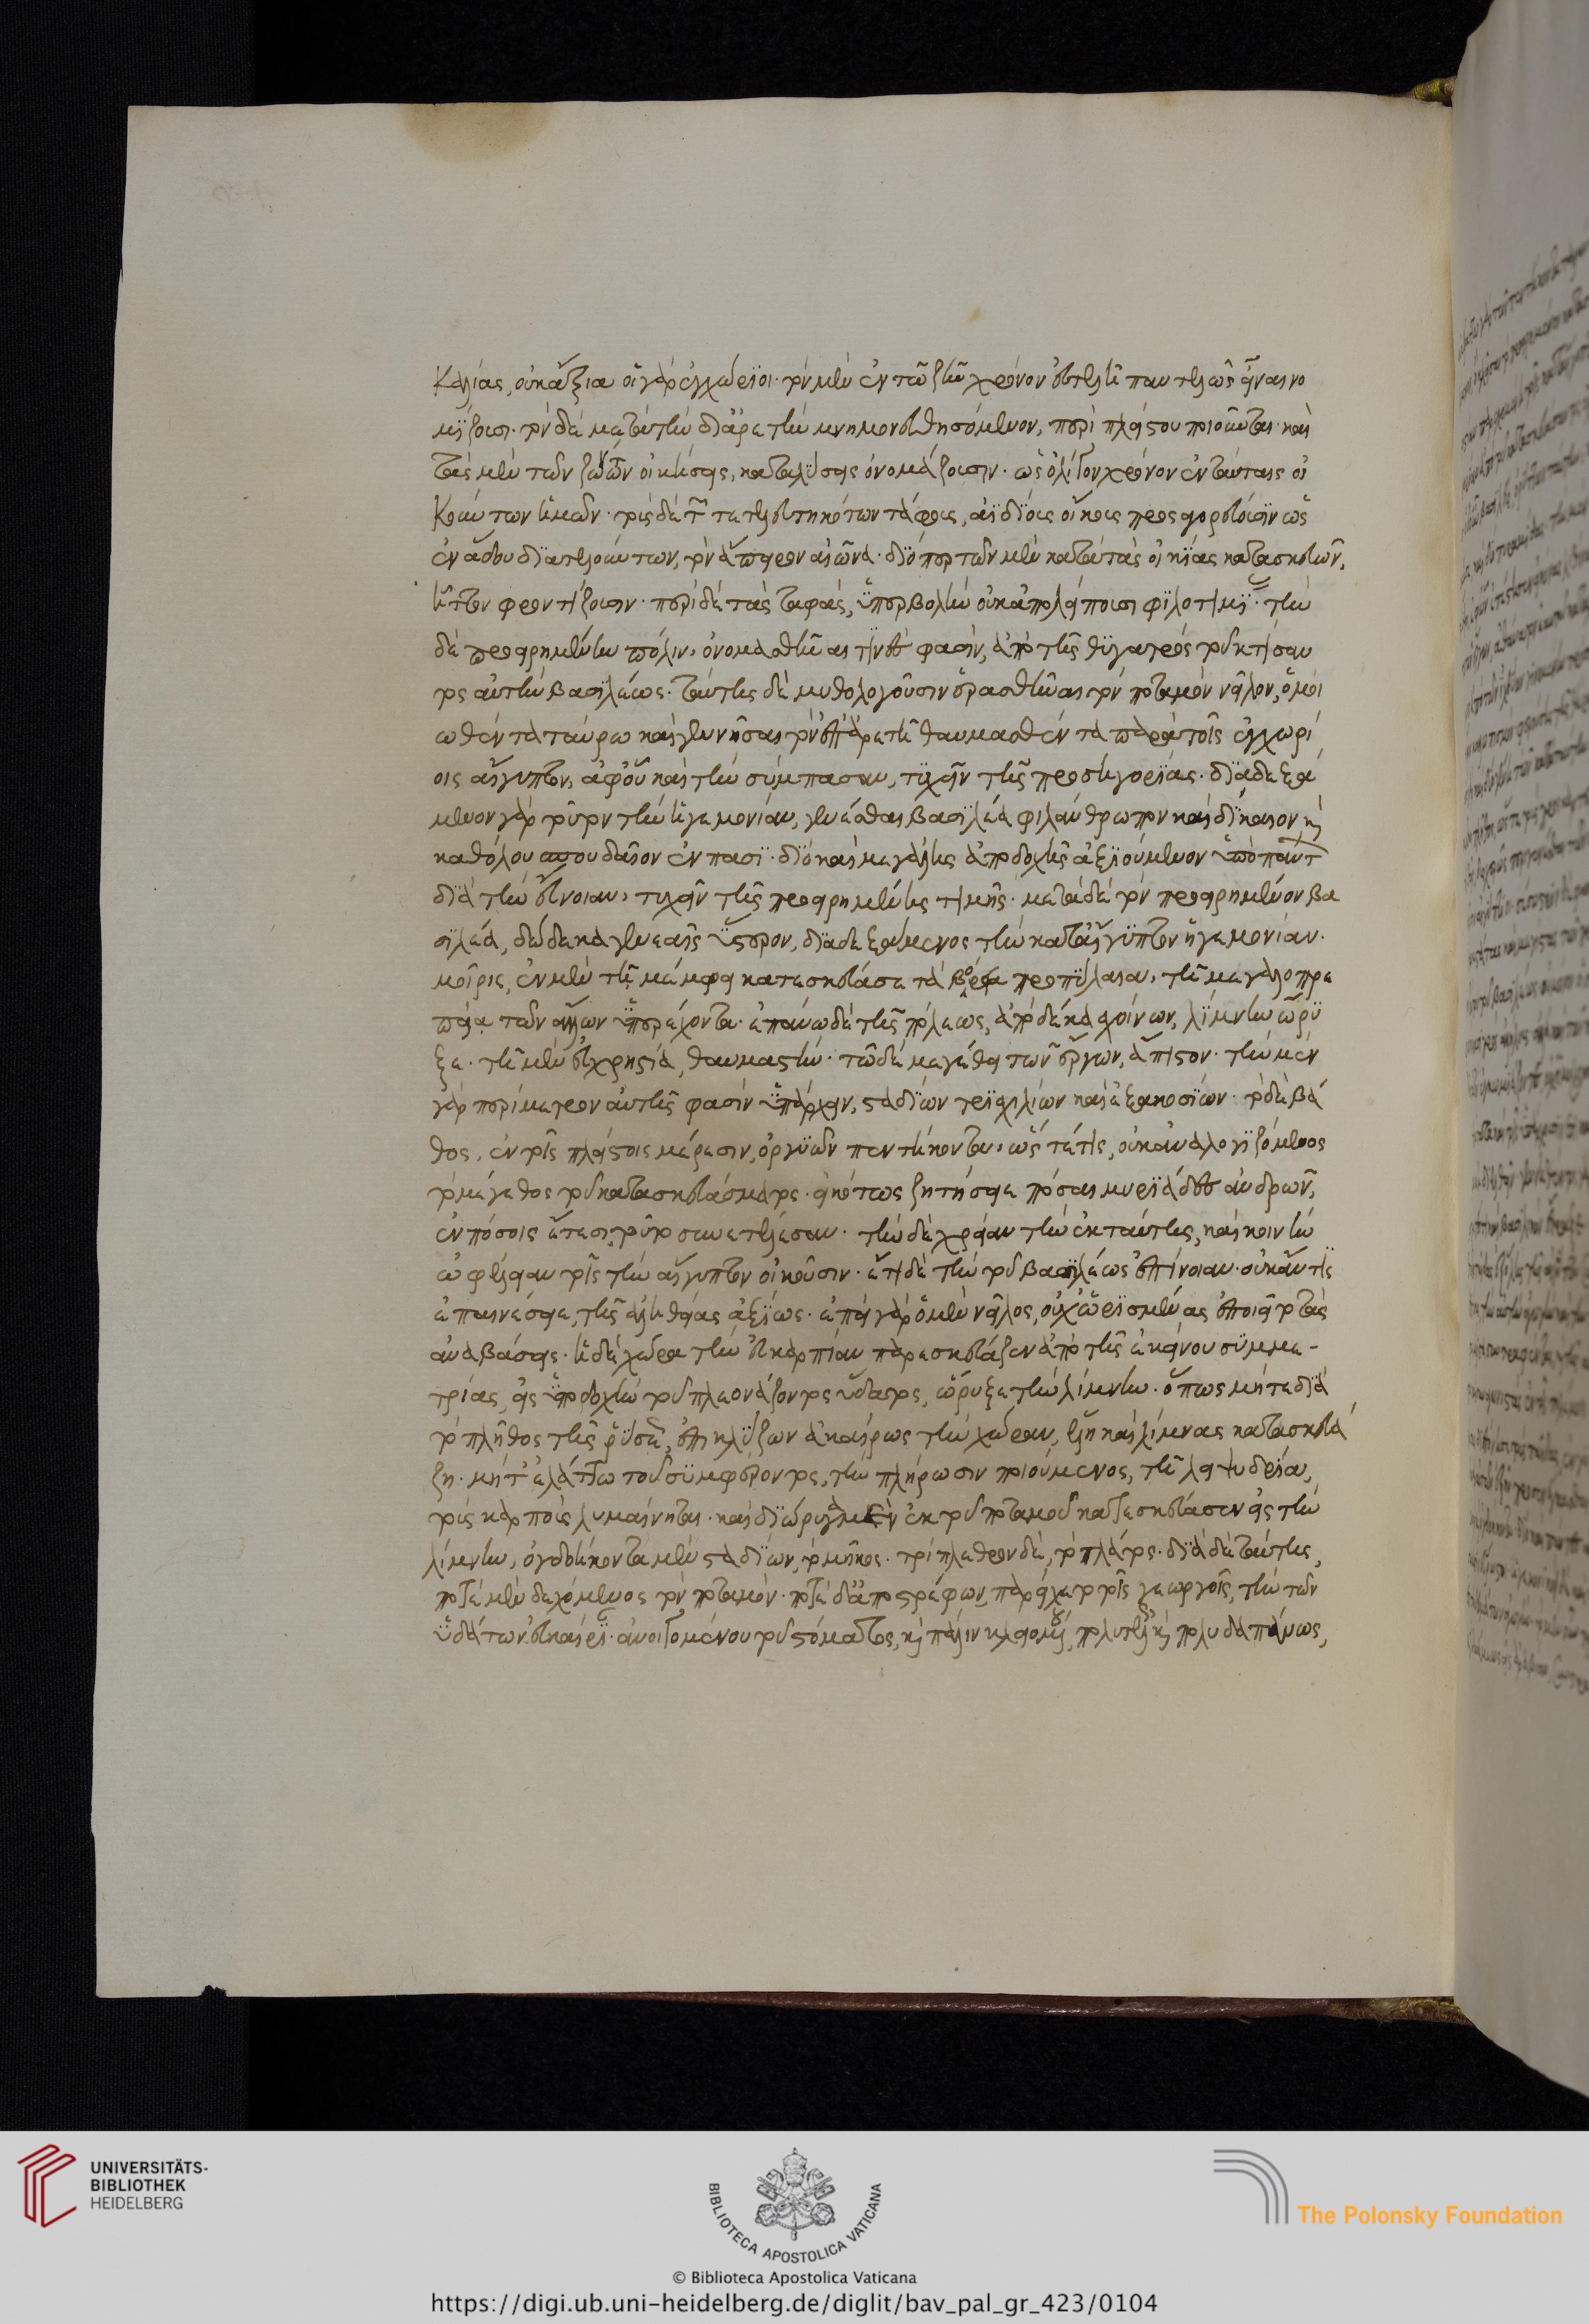 κείας, οὐκ ἄξια οἱ γὰρ ἐγχώριοι· τὸν μὲν ἐν τῶ ζῆν χρόνον εὐτελῆ παντελῶς εἶναι νο
μίζουσι· τὸν δὲ μεταύτὴν διἀρετὴν μνημονευθησόμενον, περὶ πλείστου ποιοῦνται· καὶ
τὰς μὲν τῶν ζώντων οἰκήσεις, καταλύσεις ὀνομάζουσιν· ὡς ὀλίγον χρόνον ἐν ταύταις οἰ
κούντων ἡμῶν· τοὺς δὲ τῶν τετελευτηκότων τάφους, ἀϊδίους οἴκους προσαγορεύουσιν ὡς
ἐν ἅδου διατελούντων, τὸν ἄπειρον αἰῶνα· διόπερ τῶν μὲν κατὰ τὰς οἰκίας κατασκευῶν,
ἧττον φροντίζουσιν· περὶ δὲ τὰς ταφὰς, ὑπερβολὴν οὐκ ἀπολείπουσι φιλοτιμίας· τὴν
δὲ προειρημένην πόλιν, ὀνομασθῆναι τινές φασὶν, ἀπὸ τῆς θυγατρὸς τοῦ κτίσαν
τος αὐτὴν βασιλέως. ταύτης δὲ μυθολογοῦσιν ἐρασθῆναι τὸν ποταμὸν νεῖλον, ὁμοι
ωθέντα ταύρω καὶ γεννῆσαι τὸν ἐπἀρετῆ θαυμασθέντα παρὰ τοῖς ἐγχωρί
οις αἴγυπτον, ἀφοῦ καὶ τὴν σύμπασαν, τυχεῖν τῆς προσηγορίας· διαδεξά
μενον γὰρ τοῦτον τὴν ἡγεμονίαν, γενέσθαι βασιλέα φιλάνθρωπον καὶ δίκαιον κ(αὶ)
καθόλου σπουδαῖον ἐν πασί· διὸ καὶ μεγάλης ἀποδοχῆς ἀξιούμενον ὑπὸ πάντων
διὰ τὴν εὔνοιαν, τυχεῖν τῆς προειρημένης τιμῆς. μετὰ δὲ τὸν προειρημένον βα
σιλέα, δώδεκα γενεαῖς ὕστερον, διαδεξάμενος τὴν κατ' αἴγυπτον ἡγεμονίαν·
μοῖρις, ἐν μὲν τῆ μέμφει κατεσκεύασε τὰ βόρεια προπύλαια, τῆ μεγαλοπρε
πεία τῶν ἄλλων ὑπερέχοντα· ἐπάνω δὲ τῆς πόλεως, ἀπὸ δέκα σχοίνων, λίμνην ὤρυ
ξε· τῆ μὲν εὐχρηστία, θαυμαστὴν· τῶ δὲ μεγέθει τῶν ἔργων, ἄπιστον· τὴν μὲν
γὰρ περίμετρον αὐτῆς φασὶν ὑπάρχειν, σταδίων τρισχιλίων καὶ ἑξακοσίων· τὸ δὲ βά
θος, ἐν τοῖς πλείστοις μέρεσιν, ὀργυιῶν πεντήκοντα, ὥστέ τίς, οὐκἀναλογιζόμενος
τὸ μέγεθος τοῦ κατασκευάσματος· εἰκότως ζητήσειε πόσαι μυριάδες ἀνδρῶν,
ἐν πόσοις ἔτεσι τοῦτο συνετέλεσαν. τὴν δὲ χρείαν τὴν ἐκ ταύτης, καὶ κοινὴν
ὠφέλειαν τοῖς τὴν αἴγυπτον οἰκοῦσιν· ἔτι δὲ τὴν τοῦ βασιλέως ἐπίνοιαν· οὐκ ἄν τις
ἐπαινέσειε, τῆς ἀληθείας ἀξίως. ἐπεὶ γὰρ ὁ μὲν νεῖλος, οὐχ ὡρισμένας ἐποιεῖτο τὰς
ἀναβάσεις· ἡ δὲ χώρα τὴν εὐκαρπίαν παρεσκεύαζεν ἀπὸ τῆς ἐκείνου συμμε-
τρίας, εἰς ὑποδοχὴν τοῦ πλεονάζοντος ὕδατος, ὤρυξε τὴν λίμνην· ὅπως μήτε διὰ
τὸ πλῆθος τῆς ῥύσεως, ἐπικλύζων ἀκαίρως τὴν χώραν, ἕλη καὶ λίμνας κατασκευά
ζη· μήτ' ἐλάττω τοῦ συμφέροντος, τὴν πλήρωσιν ποιούμενος, τῆ λειψυδρία,
τοὺς καρποὺς λυμαίνηται. καὶ διώρυγα μὲν ἐκ τοῦ ποταμοῦ κατεσκεύασεν εἰς τὴν
λίμνην, ὀγδοήκοντα μὲν σταδίων, τὸ μῆκος· τρίπλεθρον δὲ, τὸ πλάτος· διὰ δὲ ταύτης,
ποτὲ μὲν δεχόμενος τὸν ποταμόν· ποτὲ δ' ἀποστρέφων, παρείχετο τοῖς γεωργοῖς, τὴν τῶν
ὑδάτων εὐκαιρίαν· ἀνοιγομένου τοῦ στόματος, κ(αὶ) πάλιν κλειομένου, πολυτελῶς κ(αὶ) πολυδαπάνως,
UNIVERSITÄTS-
BIBLIOTHEK
HEIDELBERG
BIBLIOTECA APOSTOLICA VATICANA
The Polonsky Foundation
© Biblioteca Apostolica Vaticana
https://digi.ub.uni-heidelberg.de/diglit/bav_pal_gr_423/0104